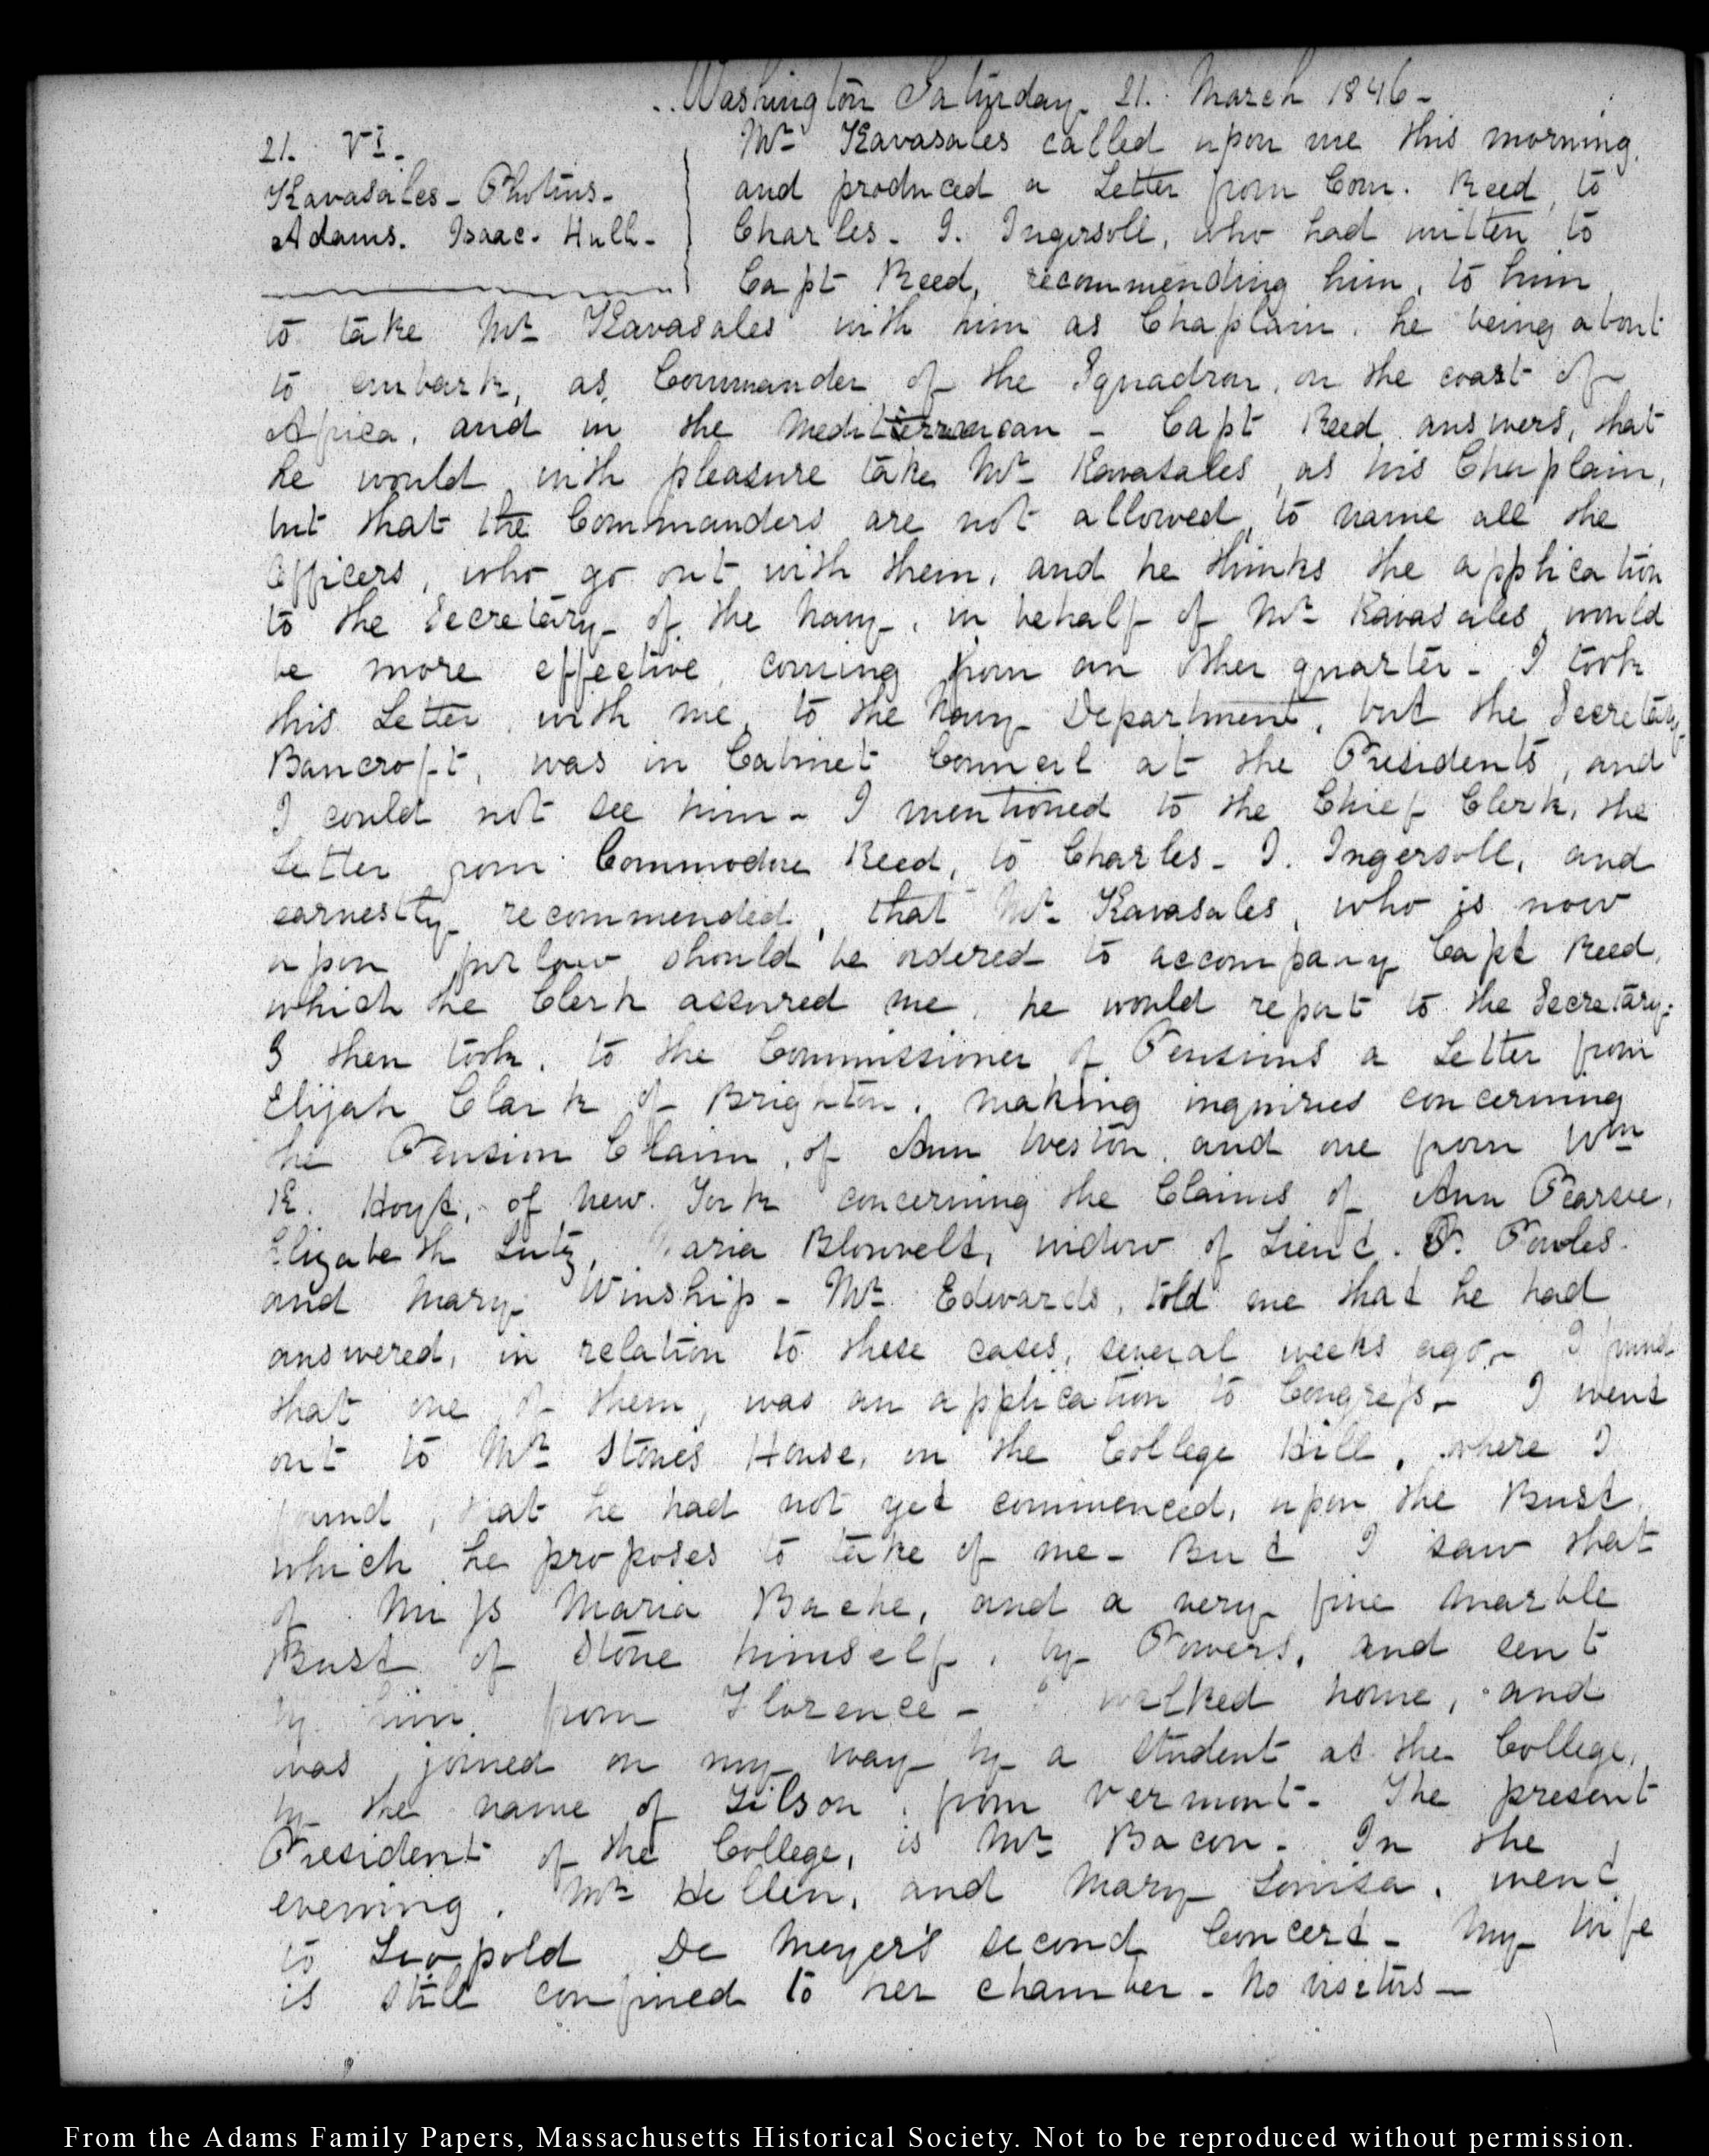 Washington Saturday 21. March 1846-
21. VI.
Kavasales- Photius-
Adams. Isaac. Hull-
Mr. Kavasales called upon me this morning,
and produced a Letter from Com. Reed, to
Charles. I. Ingersoll, who had written to
Capt Reed, recommending him, to him
to take Mr. Kavasales with him as Chaplain, he being about
to embark, as, Commander of the Squadron, on the coast of
Africa, and in the Mediterranean - Capt Reed answers, that
he would with pleasure take Mr. Kavasales, as his Chaplain,
but that the Commanders are not allowed, to name all the
Officers, who go out with them, and he thinks the application
to the Secretary of the Navy, in behalf of Mr. Kavasales would
be more effective, coming from an other quarter- I took
this Letter, with me, to the Navy Department, but the Secretary
Bancroft, was in Cabinet Council at the Presidents, and
I could not see him- I mentioned to the Chief Clerk, the
Letter from Commodore Reed, to Charles- I. Ingersoll, and
earnestly recommended, that Mr. Kavasales, who is now
upon furlow should be ordered to accompany Capt Reed,
which the Clerk assured me, he would report to the Secretary-
I then took, to the Commissioner of Pensions a Letter from
Elijah Clark of Brighton, making inquiries concerning
the Pension Claim, of Ann Weston, and one from Wm
K. Hoyt, of New. York concerning the Claims of Ann Pearsee,
Elizabeth Lutz, Maria Blouvelt, widow of Lieut. Powles-
and Mary Winship- Mr. Edwards, told me that he had
answered, in relation to these cases, several weeks ago- I found
that one of them, was an application to Congress- I went
out to Mr. Stone's House, on the College Hill, where I
found, that he had not yet commenced, upon the Bust,
which he proposes to take of me- But I saw that
of Miss Maria Bache, and a very fine marble
Bust of Stone himself, by Powers, and sent
by him from Florence- I walked home, and
was joined on my way by a student at the College,
by the name of Tilson, from Vermont- The present
President of the College, is Mr. Bacon- In the
evening, Mrs Hellen, and Mary Louisa, went
to Leopold De Meyer's second Concert- My Wife
is still confined to her chamber- No visitors-
From the Adams Family Papers, Massachusetts Historical Society. Not to be reproduced without permission.